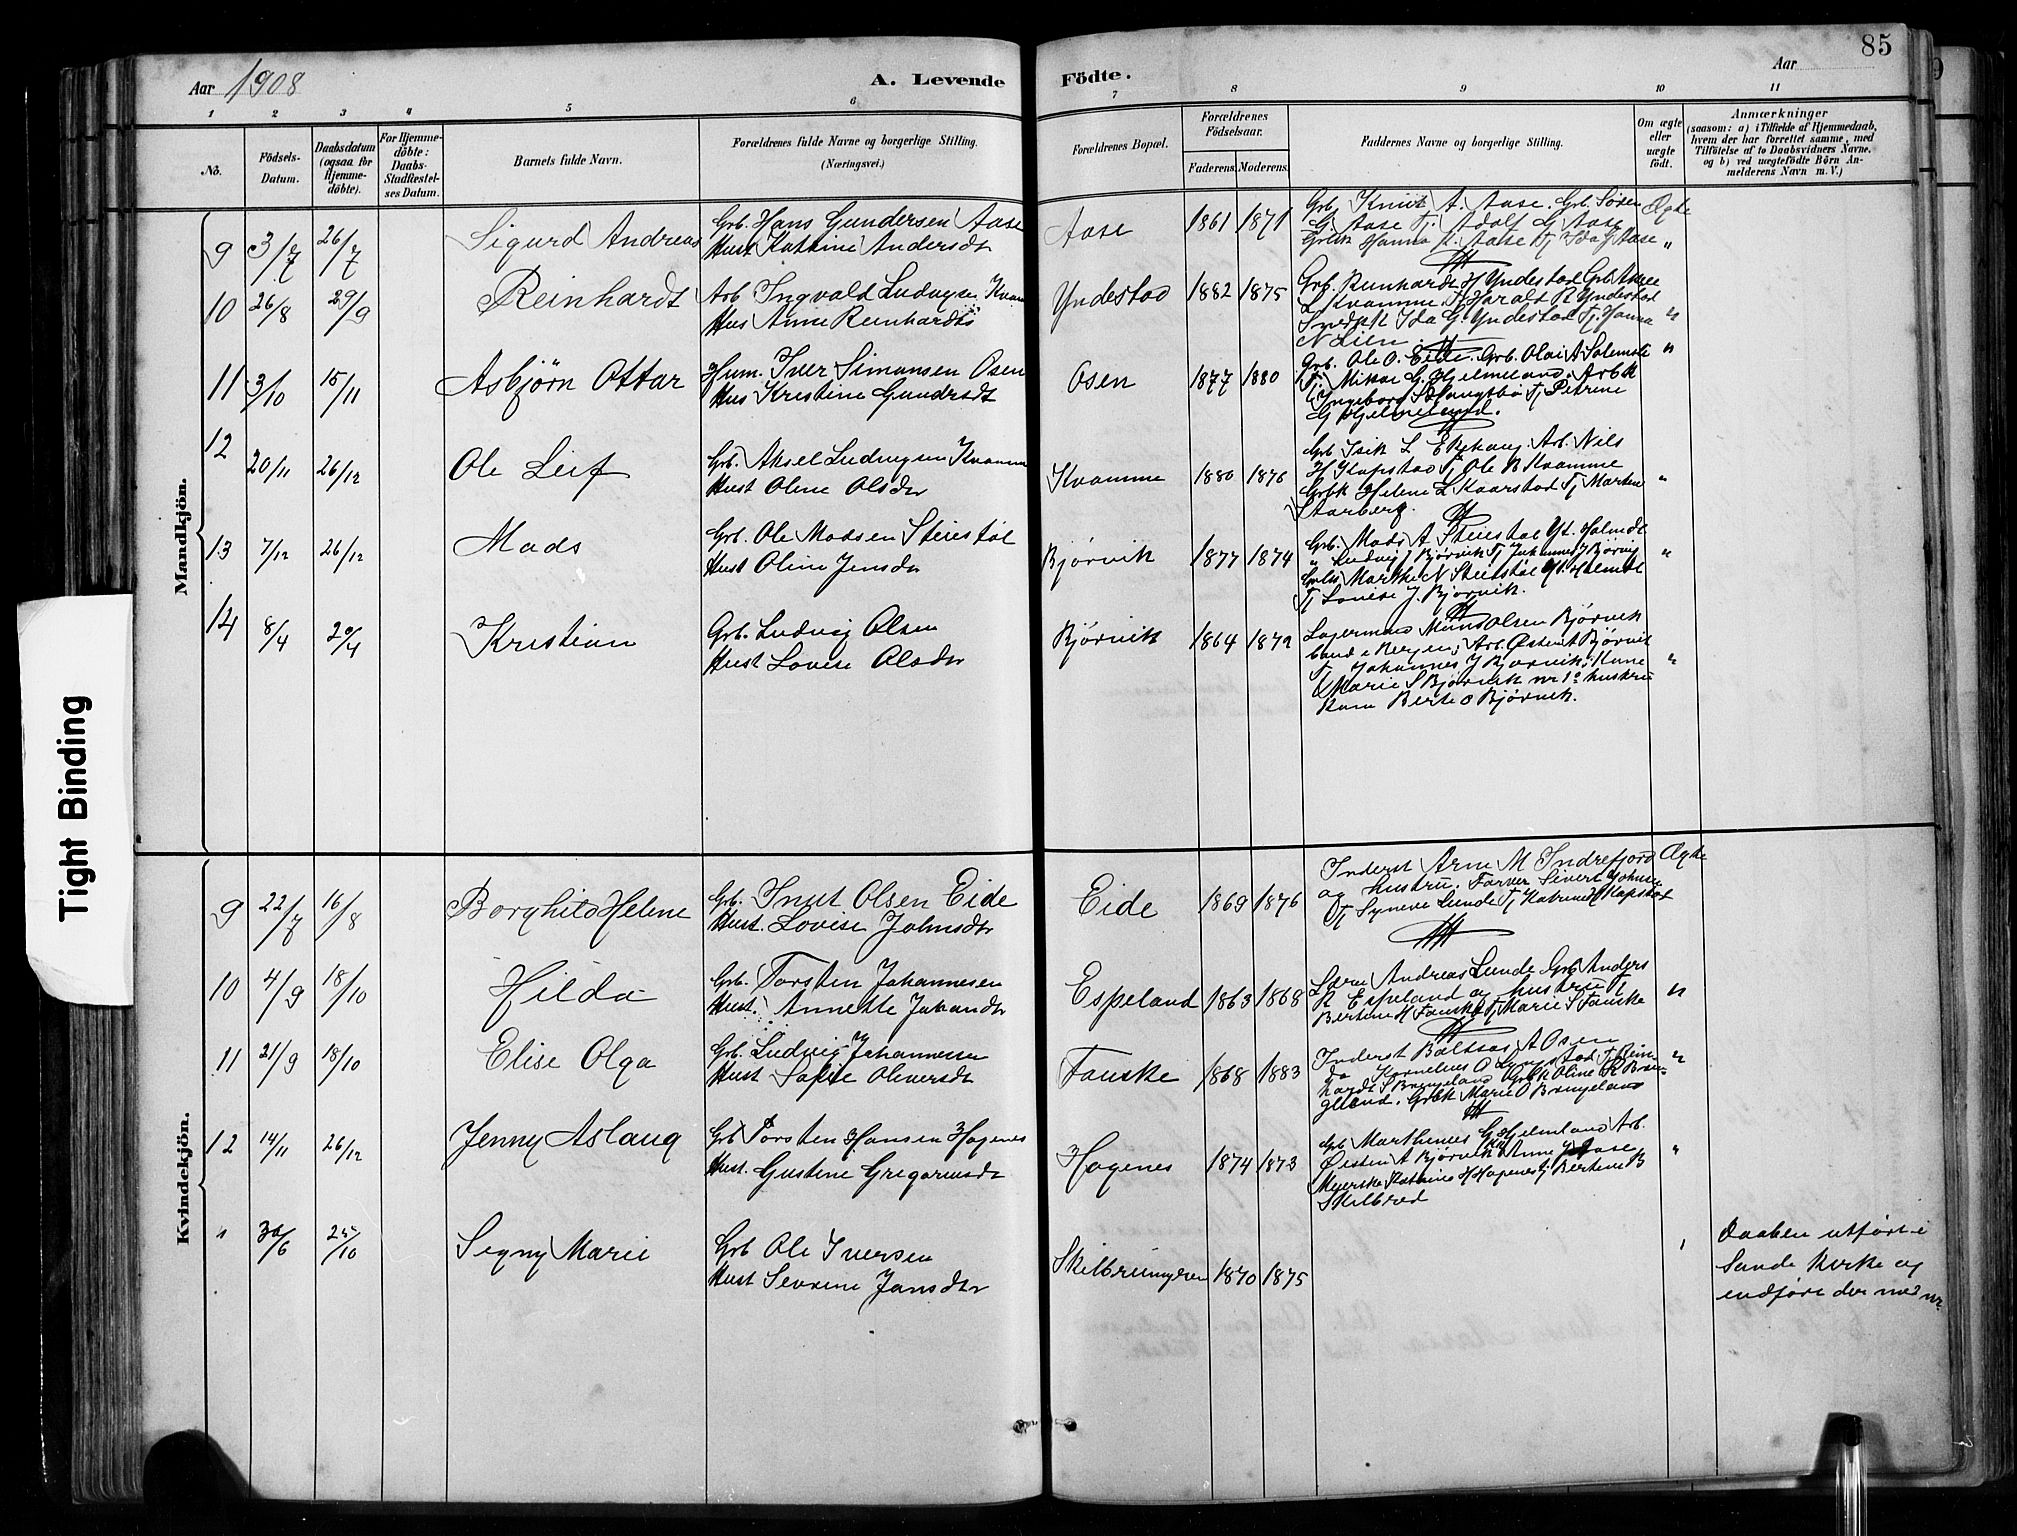 85
Aar 1908
A. Levende Födte.
Aar
1 2 3 4 5 6 7 8 9 10 11
No.
Födsels-
Datum.
Daabsdatum
(ogsaa for
Hjemme-
döbte).
For Hjemme-
döbte:
Daabs-
Stadfæstel-
ses Datum.
Barnets fulde Navn.
Forældrenes fulde Navne og borgerlige Stilling.
(Næringsvei.)
Forældrenes Bopæl.
Forældrenes
Födselsaar.
Faderens. Moderens.
Faddernes Navne og borgerlige Stilling.
Om ægte
eller
uægte
født.
Anmærkninger
(saasom: a) i Tilfælde af Hjemmedaab,
hvem der har forrettet samme, med
Tilföielse af to Daabsvidners Navne,
og b) ved uegtefödte Börn An-
melderens Navn m. V.)
Mandkjön.
9 3/7 26/7 Sigurd Andreas
Grb. Hans Gundersen Aase
Hust Kathrine Andersdtr
Aase 1861 1871
Grb. Knut A. Aase. Grb. Søren
G Aase Tj. Adolf G Aase
Grbk Hanna A. Aase Tj Ida J Aase
Ægte
"
10 26/8 29/9 Reinhardt
Arb Ingvald Ludvigsen Kvam
Hus Anne Reinhardts
Yndestad 1882 1875
Grb. Reinhardt H Yndestad Grb Aksel
L Kvamme Tj Harald R Yndestad
Snedkk Ida G. Yndestad Tj. Hanna
N Lien
"
11 3/10 15/11 Asbjørn Ottar
Hum. Iver Simonsen Osen
Hus Kristine Gundersdt
Osen 1877 1880
Grb. Ole O. Eide. Grb. Olai A Solemsli
Tj. Mikal G. Hjelmeland. Arbk
Ingeborg S Tj Petrine
G Hjelmeland.
"
12 20/11 26/12 Ole Leif
Grb. Aksel Ludvigsen Kvamme
Hust Oline Olsdtr
Kvamme 1880 1876
Grb Isik L Espehaug. Arb. Nils
H Kapstad Tj Ole B Kvamme
Grbk Helene L Kaarstad Tj Marten
Starberg.
"
13 7/12 26/12 Mads
Grb. Ole Madsen Steiestøl
Hust Oline Jensdtr
Bjørvik 1877 1874
Grb. Mads A Steiestøl Yt. Holmedl
" Ludvig J Bjørvik Tj Johannes J Bjørvig
Grbk Marthe N Steiestøl Yt. Holmedl
Tj Lovise J. Bjørvik.
"
14 8/4 20/4 Kristian
Grb. Ludvig Olsen
Hust Lovise Olsdtr
Bjørvik 1864 1872
Lagermand Mons Olsen Bjørvik
i Bergen; Arb. Østen A Bjørvik
Tj Johannes J Bjørvik; Kone
Marie S Bjørvik nr 1s hustru
Kone Berte O Bjørvik.
"
Kvindekjön.
9 22/7 16/8 Borghild Helene
Grb. Knut Olsen Eide
Hust. Lovise Johnsdtr
Eide 1869 1876
Inderst Arne M Indrefjord
og hustru. Farver Sivert Johnsen
Tj Syneve Lunde Tj Katrine H Kapstad
Ægte
10 4/9 18/10 Hilda
Grb. Torsten Johannesen
Hust. Annette Johansdtr
Espeland 1863 1868
Lærer Andreas Lunde Grb Anders
R Espeland og hustru Tj
Bertine H Fauske Tj Marie S Fauske
"
11 21/9 18/10 Elise Olga
Grb. Ludvig Johannessen
Hust Sofie Oliversdt
Fauske 1868 1883
Inderst Baltsar A Osen
do Kornelius O Lynestad Tj Rein-
hardt S Brengeland Grbk Oline R Bren-
geland. Grbk Marie O Brengeland
"
12 14/11 26/12 Jenny Aslaug
Grb Torsten Hansen Hagenes
Hust. Gustine Gregoriusdt
Hagenes 1874 1873
Grb Marthinus G Hjelmeland Arb.
Østen A Bjørvik Anne J Aase
Meierske Kathrine H Hagenes Tj Bertine B
Skilbred
"
" 30/6 25/10 Signy Marie
Grb Ole Iversen
Hust Severine Jansdtr
Skilbreimyren 1870 1875
Daaben utført i
Sande Kirke og
indført der med nr.
Tight Binding